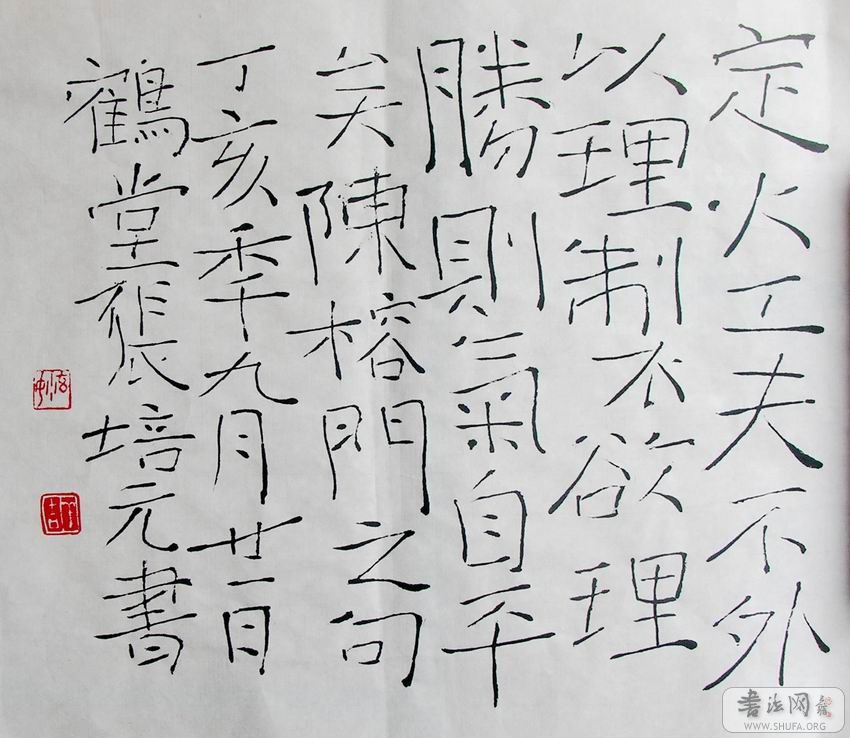 定火工夫不外
以理制不欲理
勝則氣自平
矣陳榕門之句
丁亥秊九月廿一日
鶴堂裴培元書
書法网
WWW.SHUFA.ORG